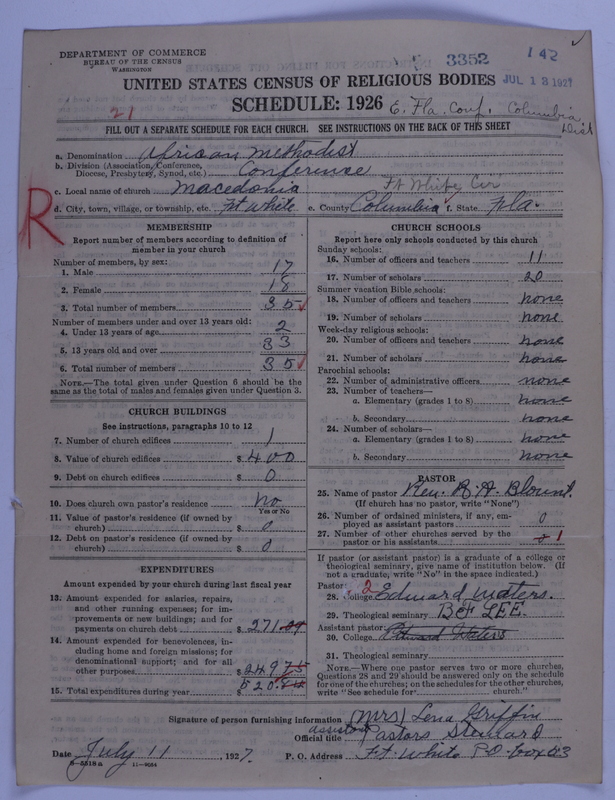 DEPARTMENT OF COMMERCE
BUREAU OF THE CENSUS
WASHINGTON
3352
142
JUL 13 1927
UNITED STATES CENSUS OF RELIGIOUS BODIES
SCHEDULE: 1926
21
E. Fla. Conf. Columbia Dist
FILL OUT A SEPARATE SCHEDULE FOR EACH CHURCH. SEE INSTRUCTIONS ON THE BACK OF THIS SHEET
R
a. Denomination African Methodist
b. Division (Association, Conference, Diocese, Presbytery, Synod, etc.) Conference
c. Local name of church Macedonia Ft White Cir
d. City, town, village, or township, etc. Ft White e. County Columbia f. State Fla.
MEMBERSHIP
Report number of members according to definition of member in your church
Number of members, by sex:
1. Male 17
2. Female 18
3. Total number of members 35
Number of members under and over 13 years old:
4. Under 13 years of age 2
5. 13 years old and over 33
6. Total number of members 35
NOTE.—The total given under Question 6 should be the same as the total of males and females given under Question 3.
CHURCH BUILDINGS
See instructions, paragraphs 10 to 12
7. Number of church edifices 1
8. Value of church edifices $ 400
9. Debt on church edifices $ 0
10. Does church own pastor's residence No
Yes or No
11. Value of pastor's residence (if owned by church) $ 0
12. Debt on pastor's residence (if owned by church) $ 0
EXPENDITURES
Amount expended by your church during last fiscal year
13. Amount expended for salaries, repairs, and other running expenses; for improvements or new buildings; and for payments on church debt $ 271
14. Amount expended for benevolences, including home and foreign missions; for denominational support; and for all other purposes $ 249 75
15. Total expenditures during year $ 520
CHURCH SCHOOLS
Report here only schools conducted by this church
Sunday schools:
16. Number of officers and teachers 11
17. Number of scholars 20
Summer vacation Bible schools:
18. Number of officers and teachers none
19. Number of scholars none
Week-day religious schools:
20. Number of officers and teachers none
21. Number of scholars none
Parochial schools:
22. Number of administrative officers none
23. Number of teachers—
a. Elementary (grades 1 to 8) none
b. Secondary none
24. Number of scholars—
a. Elementary (grades 1 to 8) none
b. Secondary none
PASTOR
25. Name of pastor Rev. R. A. Blount
(If church has no pastor, write "None")
26. Number of ordained ministers, if any, employed as assistant pastors 0
27. Number of other churches served by the pastor or his assistants 1
If pastor (or assistant pastor) is a graduate of a college or theological seminary, give name of institution below. (If not a graduate, write "No" in the space indicated.)
Pastor: 2
28. College Edward Waters.
29. Theological seminary B.F LEE.
Assistant pastor:
30. College Edward Waters
31. Theological seminary
NOTE.—Where one pastor serves two or more churches, Questions 28 and 29 should be answered only on the schedule for one of the churches; on the schedules for the other churches, write "See schedule for church."
Signature of person furnishing information (Mrs) Lena Griffin
Official title assistant Pastors Steward
Date July 11, 1927.
P. O. Address Ft. White P.O. box
8—5518a 11—9064